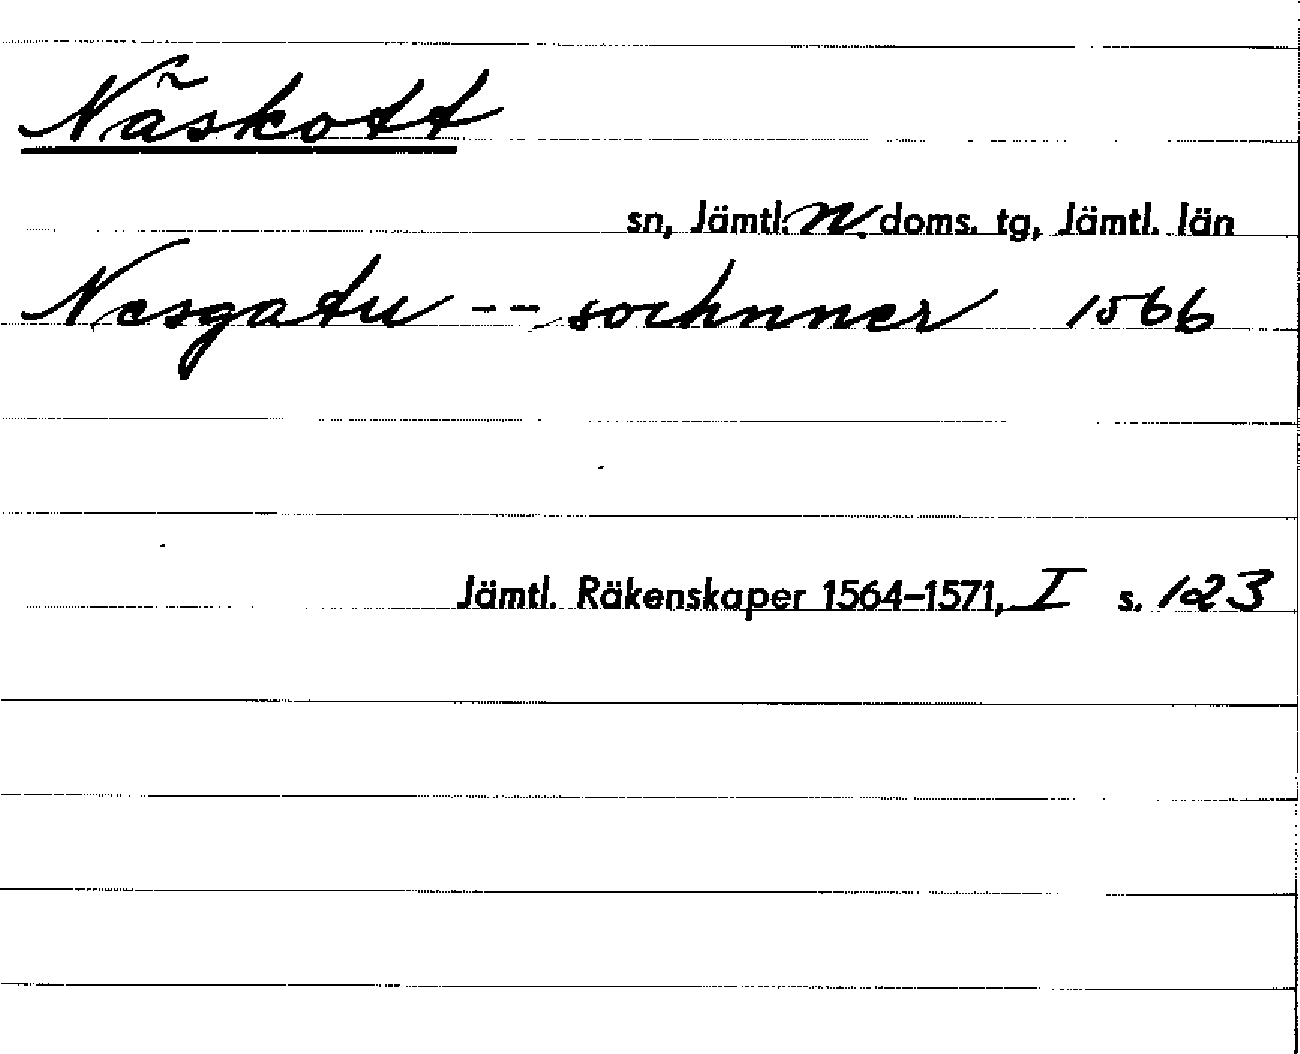 Näskott
sn, Jämtl. N. doms. tg, Jämtl. län
Nesgatu -- sochnner 1566
Jämtl. Räkenskaper 1564-1571, I s. 123